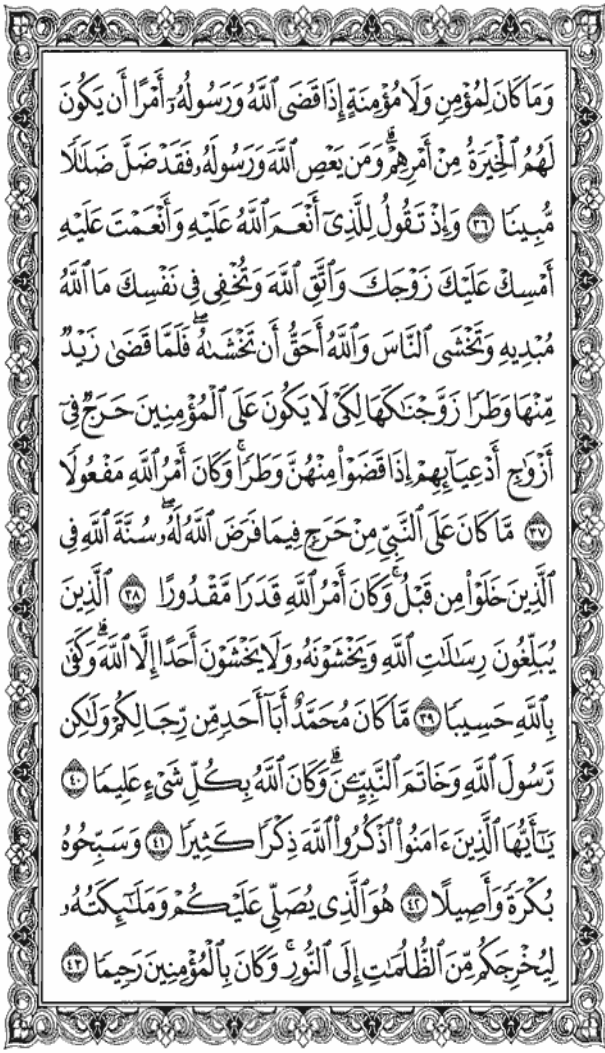 وَمَا كَانَ لِمُؤْمِنٍ وَلَا مُؤْمِنَةٍ إِذَا قَضَى ٱللَّهُ وَرَسُولُهُۥٓ أَمْرًا أَن يَكُونَ
لَهُمُ ٱلْخِيَرَةُ مِنْ أَمْرِهِمْۗ وَمَن يَعْصِ ٱللَّهَ وَرَسُولَهُۥ فَقَدْ ضَلَّ ضَلَٰلًا
مُّبِينًا ٣٦ وَإِذْ تَقُولُ لِلَّذِىٓ أَنْعَمَ ٱللَّهُ عَلَيْهِ وَأَنْعَمْتَ عَلَيْهِ
أَمْسِكْ عَلَيْكَ زَوْجَكَ وَٱتَّقِ ٱللَّهَ وَتُخْفِى فِى نَفْسِكَ مَا ٱللَّهُ
مُبْدِيهِ وَتَخْشَى ٱلنَّاسَ وَٱللَّهُ أَحَقُّ أَن تَخْشَىٰهُۖ فَلَمَّا قَضَىٰ زَيْدٌ
مِّنْهَا وَطَرًا زَوَّجْنَٰكَهَا لِكَىْ لَا يَكُونَ عَلَى ٱلْمُؤْمِنِينَ حَرَجٌ فِىٓ
أَزْوَٰجِ أَدْعِيَآئِهِمْ إِذَا قَضَوْا۟ مِنْهُنَّ وَطَرًاۚ وَكَانَ أَمْرُ ٱللَّهِ مَفْعُولًا
٣٧ مَّا كَانَ عَلَى ٱلنَّبِىِّ مِنْ حَرَجٍ فِيمَا فَرَضَ ٱللَّهُ لَهُۥۖ سُنَّةَ ٱللَّهِ فِى
ٱلَّذِينَ خَلَوْا۟ مِن قَبْلُۚ وَكَانَ أَمْرُ ٱللَّهِ قَدَرًا مَّقْدُورًا ٣٨ ٱلَّذِينَ
يُبَلِّغُونَ رِسَٰلَٰتِ ٱللَّهِ وَيَخْشَوْنَهُۥ وَلَا يَخْشَوْنَ أَحَدًا إِلَّا ٱللَّهَۗ وَكَفَىٰ
بِٱللَّهِ حَسِيبًا ٣٩ مَّا كَانَ مُحَمَّدٌ أَبَآ أَحَدٍ مِّن رِّجَالِكُمْ وَلَٰكِن
رَّسُولَ ٱللَّهِ وَخَاتَمَ ٱلنَّبِيِّۦنَۗ وَكَانَ ٱللَّهُ بِكُلِّ شَىْءٍ عَلِيمًا ٤٠
يَٰٓأَيُّهَا ٱلَّذِينَ ءَامَنُوا۟ ٱذْكُرُوا۟ ٱللَّهَ ذِكْرًا كَثِيرًا ٤١ وَسَبِّحُوهُ
بُكْرَةً وَأَصِيلًا ٤٢ هُوَ ٱلَّذِى يُصَلِّى عَلَيْكُمْ وَمَلَٰٓئِكَتُهُۥ
لِيُخْرِجَكُم مِّنَ ٱلظُّلُمَٰتِ إِلَى ٱلنُّورِۚ وَكَانَ بِٱلْمُؤْمِنِينَ رَحِيمًا ٤٣